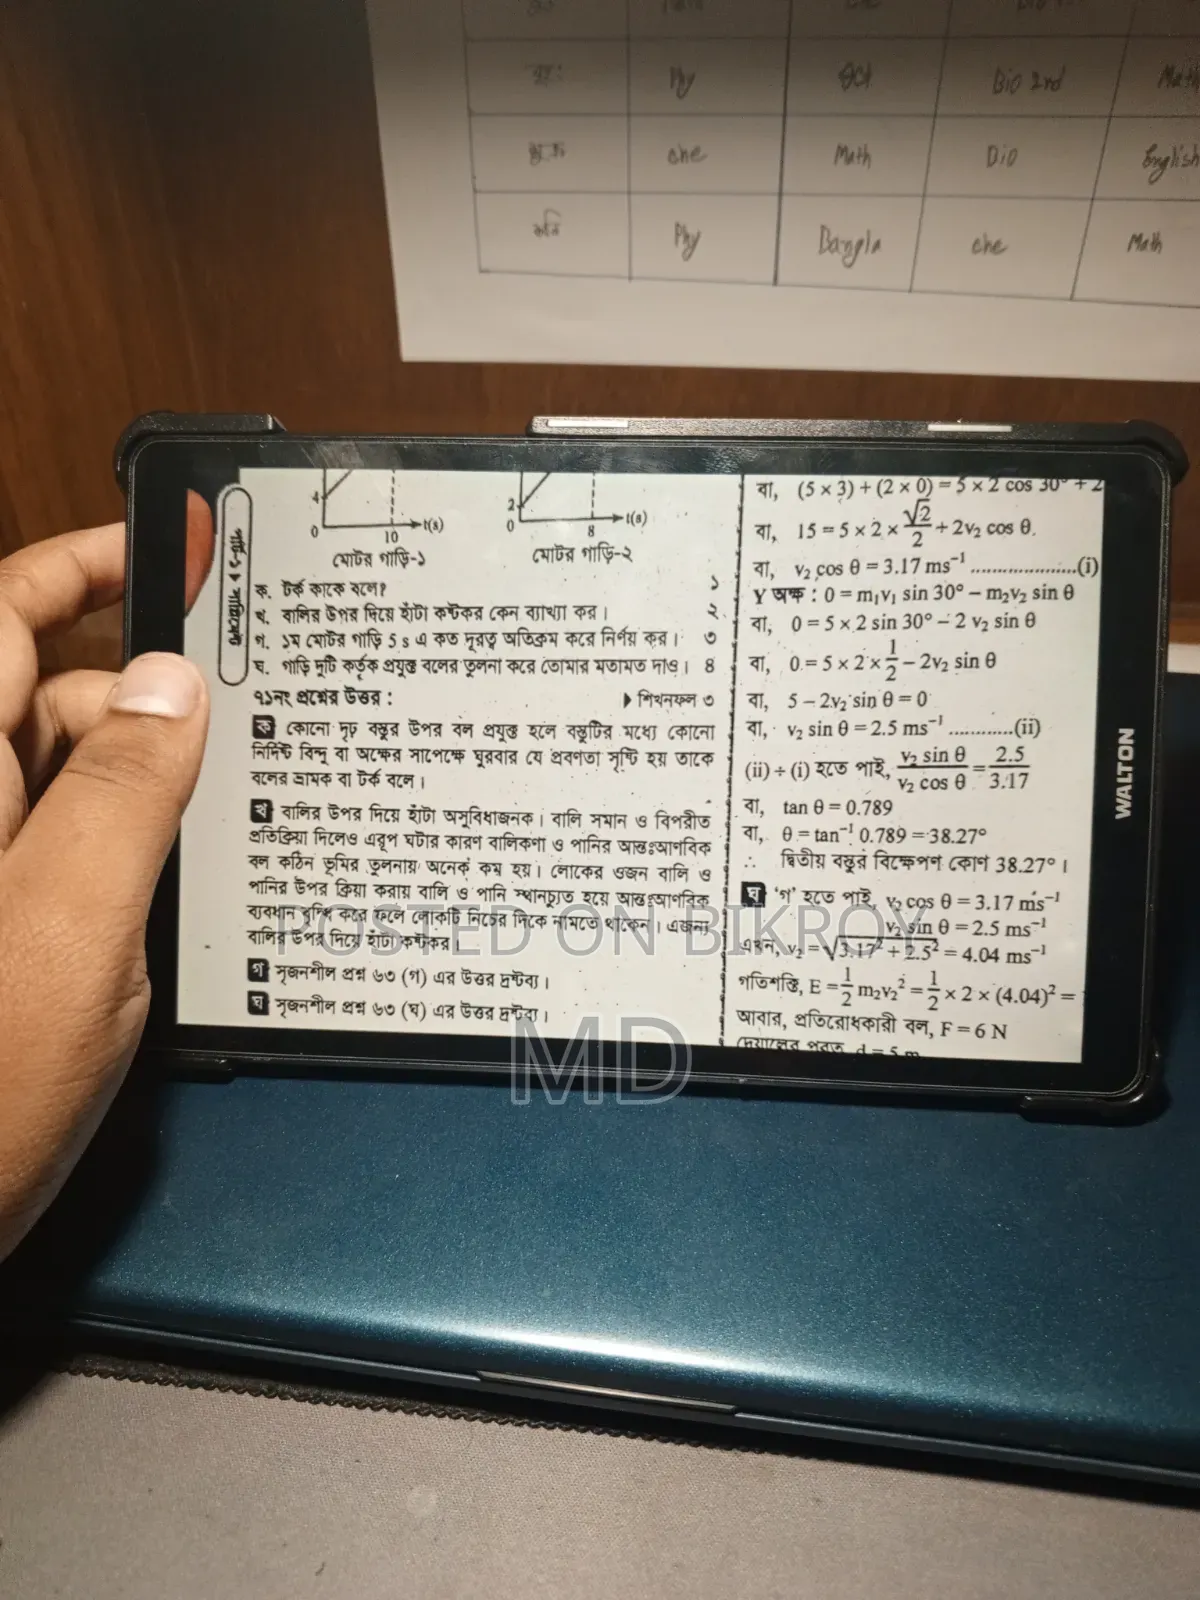 বৃহ: Phy Bio 2nd Math
শুক্র che Math Bio English
শনি Phy Bangla che Math
WALTON
4
0 10 t(s)
মোটর গাড়ি-১
2
0 8 t(s)
মোটর গাড়ি-২
ক. টর্ক কাকে বলে? ১
খ. বালির উপর দিয়ে হাঁটা কষ্টকর কেন ব্যাখ্যা কর। ২
গ. ১ম মোটর গাড়ি 5 s এ কত দূরত্ব অতিক্রম করে নির্ণয় কর। ৩
ঘ. গাড়ি দুটি কর্তৃক প্রযুক্ত বলের তুলনা করে তোমার মতামত দাও। ৪
৭১নং প্রশ্নের উত্তর : শিখনফল ৩
ক কোনো দৃঢ় বস্তুর উপর বল প্রযুক্ত হলে বস্তুটির মধ্যে কোনো
নির্দিষ্ট বিন্দু বা অক্ষের সাপেক্ষে ঘুরবার যে প্রবণতা সৃষ্টি হয় তাকে
বলের ভ্রামক বা টর্ক বলে।
খ বালির উপর দিয়ে হাঁটা অসুবিধাজনক। বালি সমান ও বিপরীত
প্রতিক্রিয়া দিলেও এরূপ ঘটার কারণ বালিকণা ও পানির আন্তঃআণবিক
বল কঠিন ভূমির তুলনায় অনেক কম হয়। লোকের ওজন বালি ও
পানির উপর ক্রিয়া করায় বালি ও পানি স্থানচ্যুত হয়ে আন্তঃআণবিক
ব্যবধান বৃদ্ধি করে ফলে লোকটি নিচের দিকে নামতে থাকেন। এজন্য
বালির উপর দিয়ে হাঁটা কষ্টকর।
গ সৃজনশীল প্রশ্ন ৬৩ (গ) এর উত্তর দ্রষ্টব্য।
ঘ সৃজনশীল প্রশ্ন ৬৩ (ঘ) এর উত্তর দ্রষ্টব্য।
বা, (5 × 3) + (2 × 0) = 5 × 2 cos 30° + 2
বা, 15 = 5 × 2 × √2/2 + 2v₂ cos θ.
বা, v₂ cos θ = 3.17 ms⁻¹ .....................(i)
Y অক্ষ : 0 = m₁v₁ sin 30° − m₂v₂ sin θ
বা, 0 = 5 × 2 sin 30° − 2 v₂ sin θ
বা, 0 = 5 × 2 × 1/2 − 2v₂ sin θ
বা, 5 − 2v₂ sin θ = 0
বা, v₂ sin θ = 2.5 ms⁻¹ ............(ii)
(ii) ÷ (i) হতে পাই, v₂ sin θ/v₂ cos θ = 2.5/3.17
বা, tan θ = 0.789
বা, θ = tan⁻¹ 0.789 = 38.27°
∴ দ্বিতীয় বস্তুর বিক্ষেপণ কোণ 38.27°।
ঘ 'গ' হতে পাই, v₂ cos θ = 3.17 ms⁻¹
v₂ sin θ = 2.5 ms⁻¹
এখন, v₂ = √3.17² + 2.5² = 4.04 ms⁻¹
গতিশক্তি, E = 1/2 m₂v₂² = 1/2 × 2 × (4.04)² =
আবার, প্রতিরোধকারী বল, F = 6 N
দেয়ালের পুরুত্ব, d = 5 m
POSTED ON BIKROY
MD